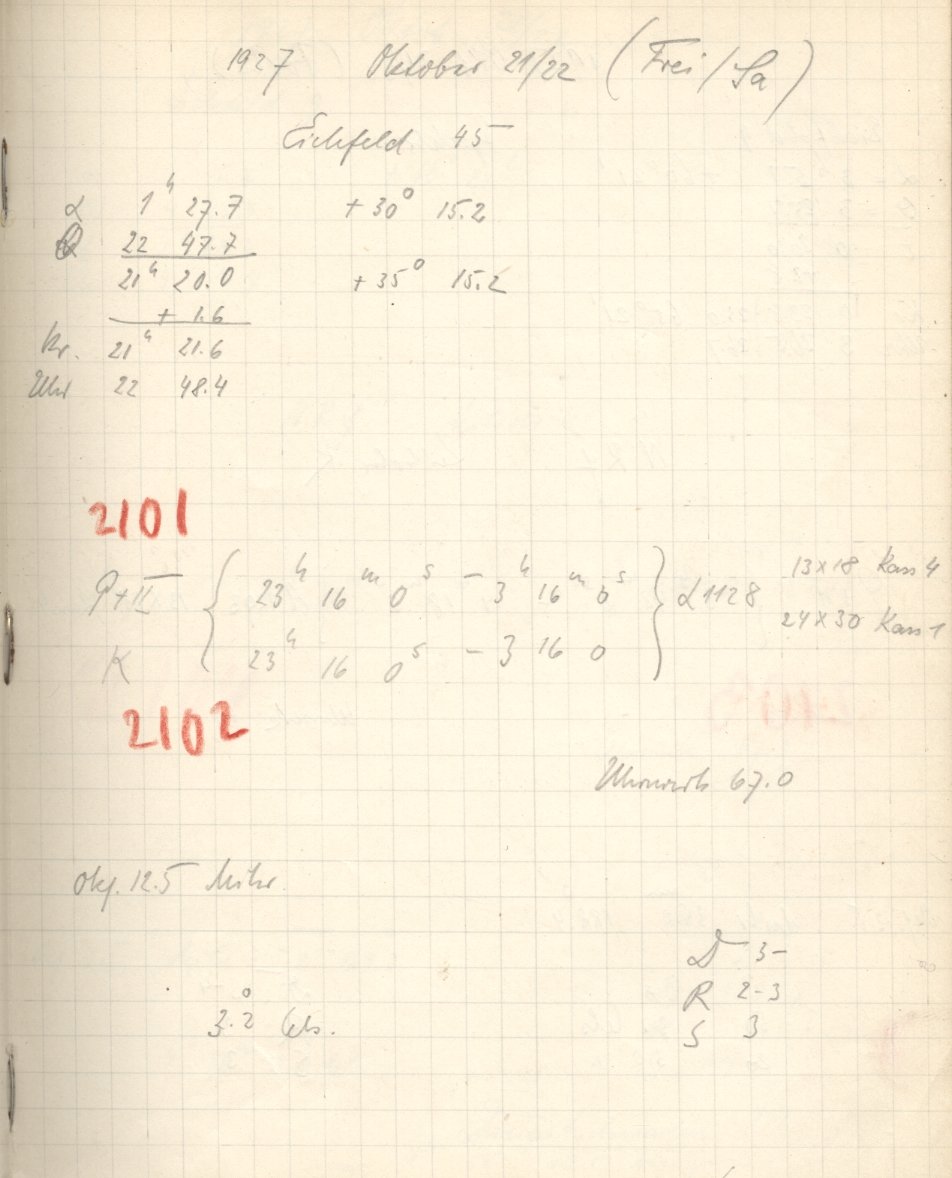 1927 Oktober 21/22 (Frei/Sa)
Eichfeld 45
α 1ʰ 27.7 +30° 15.2
22 47.7
21ʰ 20.0 +35° 15.2
+ 1.6
Kr. 21ʰ 21.6
Uhr 22 48.4
2101
P+II { 23ʰ 16ᵐ 0ˢ – 3ʰ 16ᵐ 0ˢ } α 1128 13×18 Kass 4
K 23ʰ 16 0ˢ – 3 16 0 24×30 Kass 1
2102
Uhrwerk 67.0
Okf. 12.5
D 3–
R 2-3
3.2° Cels.
S 3